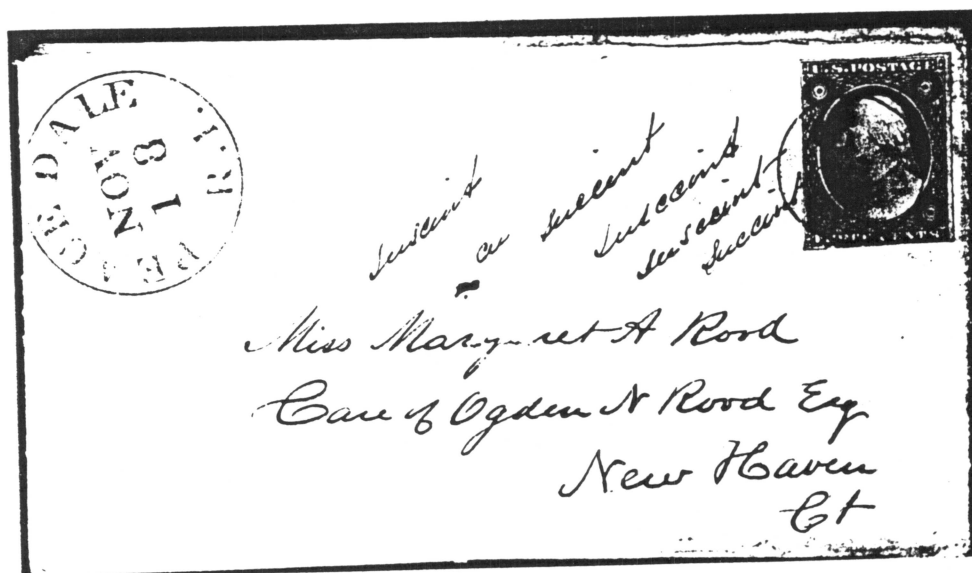 PEACE DALE R.I.
NOV
18
U.S. POSTAGE
suscint
cu succint
suscint
suscint
succint
Miss Margaret A Rood
Care of Ogden N Rood Esq
New Haven
Ct